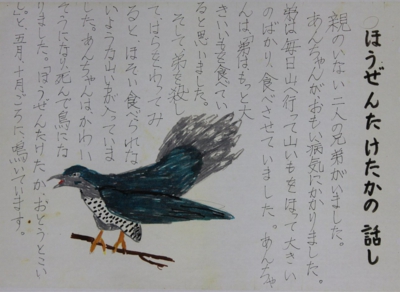 ほうぜんたけたかの話し
親のいない二人の兄弟がいました。
あんちゃんがおもい病気にかかりました。
弟は毎日山へ行って山いもをほって大きい
のばかり、食べさせていました。あんちゃ
んは、弟はもっと大
きいいもを食べてい
ると思いました。
そして弟を殺し
てはらをわってみ
ると、ほそい食べられな
いような山いもが入っていま
した。あんちゃんはかわい
そうになり死んで鳥にな
りました。ほうぜんたけたかおとうとこい
しと五月、十月、ごろに、鳴いています。